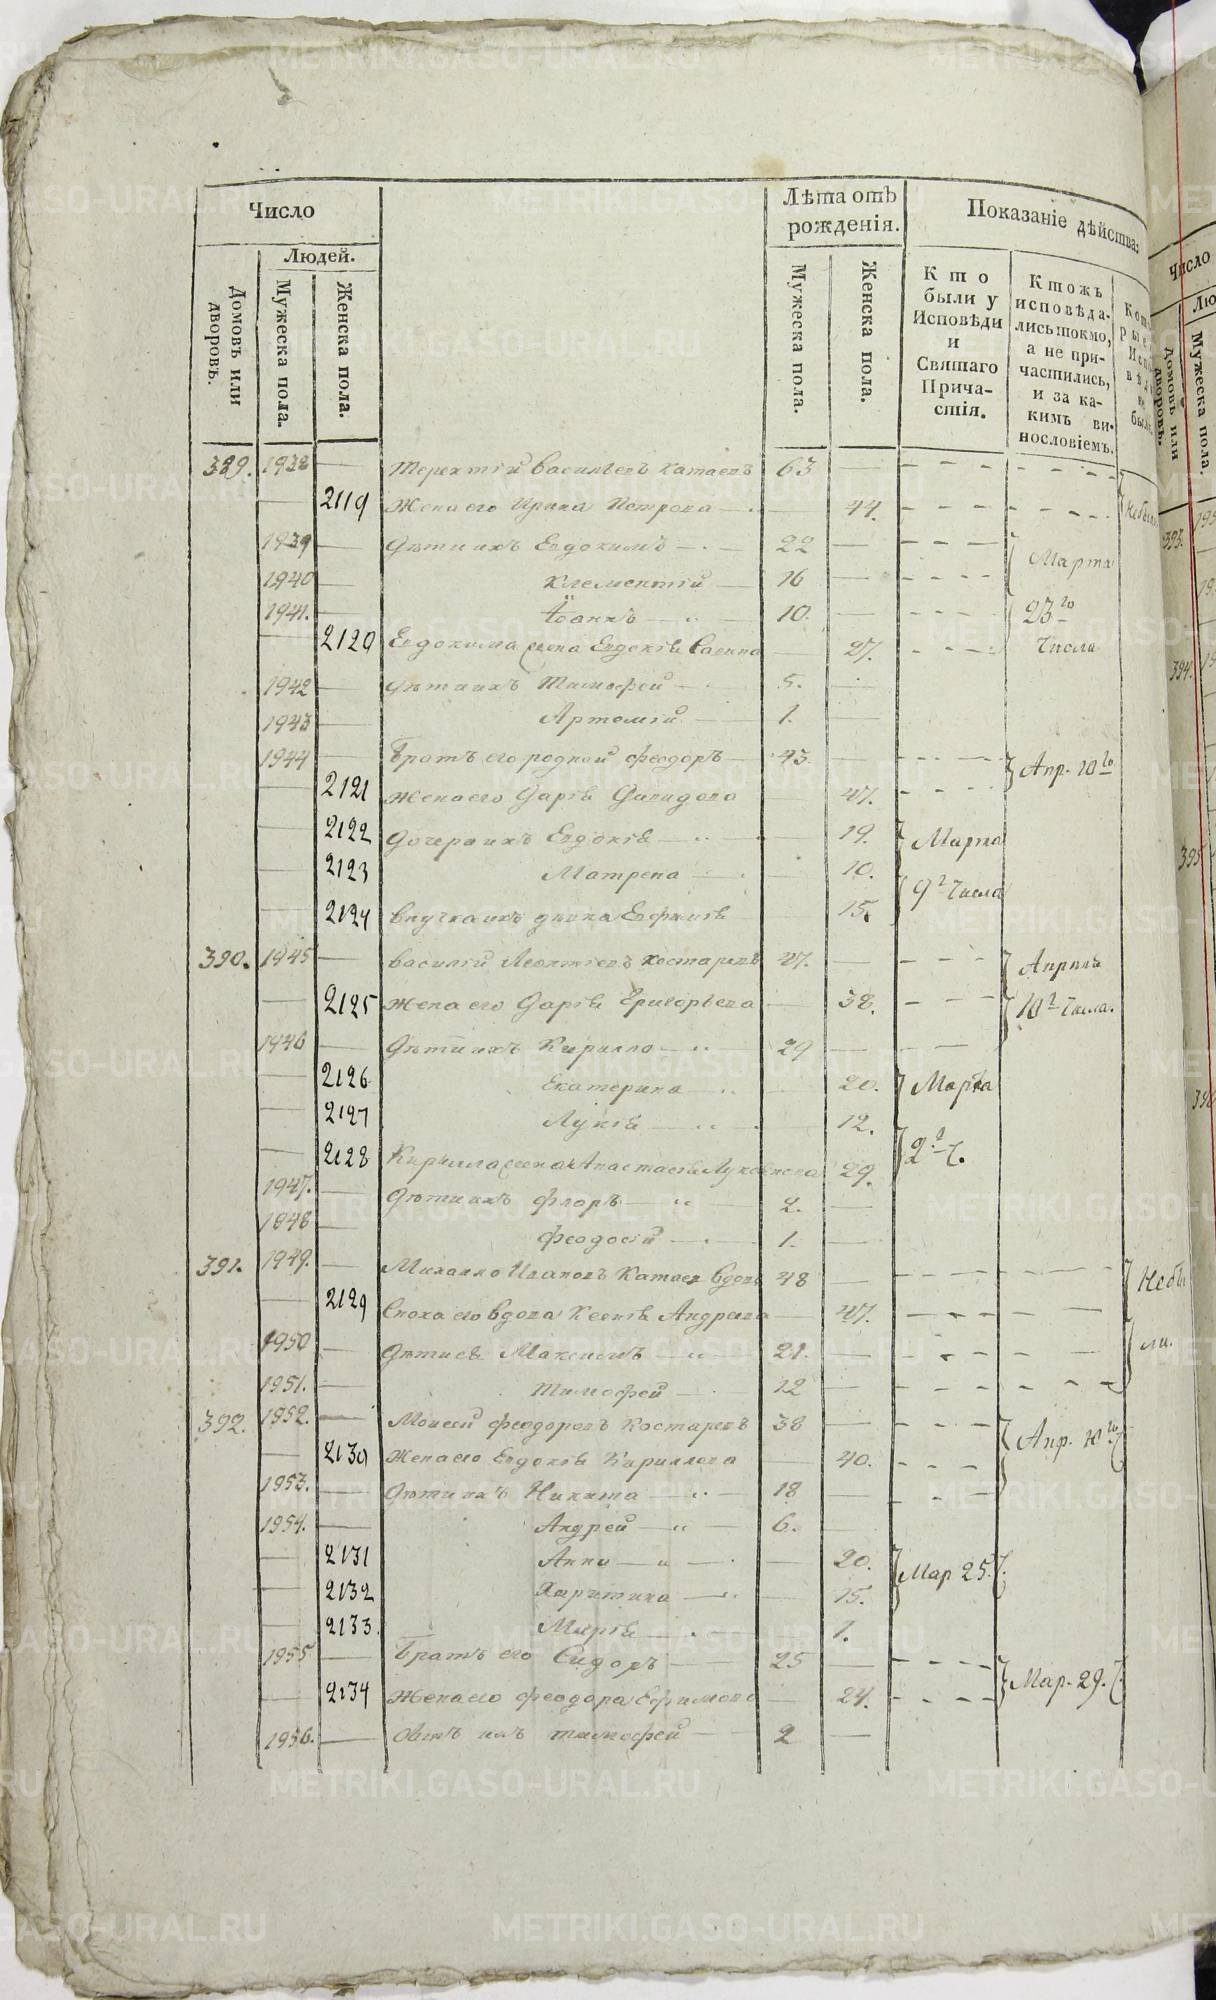 Число
Людей.
Домовъ или дворовъ.
Мужеска пола.
Женска пола.
Лѣта отъ рожденія.
Мужеска пола.
Женска пола.
Показаніе дѣйства:
Кто были у Исповѣди и Святаго Причастія.
Ктожъ исповѣдались токмо, а не причастились, и за какимъ винословіемъ.
389. 1938 — Терентій Васильевъ Катаевъ 63 —
— 2119 Жена его Ирина Петрова — 44.
1939 — Дѣти ихъ Евдокимъ 22 — Марта
1940 — Клементій 16 —
1941. — Іоаннъ 10. — 23го
— 2120 Евдокима жена Евдокія Савина — 27. Числа
1942 — Дѣти ихъ Тимофей 5. —
1943 — Артемій 1. —
1944 — Братъ его родной Феодоръ 43. — Апр. 10го
— 2121 Жена его Дарія Давидова — 47.
— 2122 Дочери ихъ Евдокія — 19. Марта
— 2123 Матрена — 10. 9г Числа
— 2124 Внучка ихъ — 15.
390. 1945 — Василій Леонтіевъ Костаревъ 47. — Апрѣль
— 2125 Жена его Дарія Григорьева — 38. 10г Числа.
1946 — Дѣти ихъ Кирилло 29 —
— 2126 Екатерина — 20. Марта
— 2127 Лукія — 12. 2г Ч.
— 2128 Кирилла жена Анастасія — 29.
1947. — Дѣти ихъ Флоръ 2. —
1948 — Феодосій 1. —
391. 1949. — Михайло Ивановъ Катаев вдовъ 48 — Небы
— 2129 Сноха его вдова Ксенія Андреева — 47.
1950 — Дѣти ея Максимъ 21. — ли.
1951. — Тимофей 12 —
392. 1952. — Моисей Феодоровъ Костаревъ 38 — Апр. 10го
— 2130 Жена его Евдокія Кириллова — 40.
1953. — Дѣти их Никита 18 —
1954. — Андрей 6. —
— 2131 Анна — 20. Мар 25.
— 2132 Харитина — 15.
— 2133. Марія — 1.
1955 — Братъ его Сидоръ 25 — Мар. 29.
— 2134 Жена его Феодора Ефимова — 24.
1956. — Тимофей 2 —
Число
Мужеска пола.
Домовъ или дворовъ.
393.
394.
395
METRIKI.GASO-URAL.RU